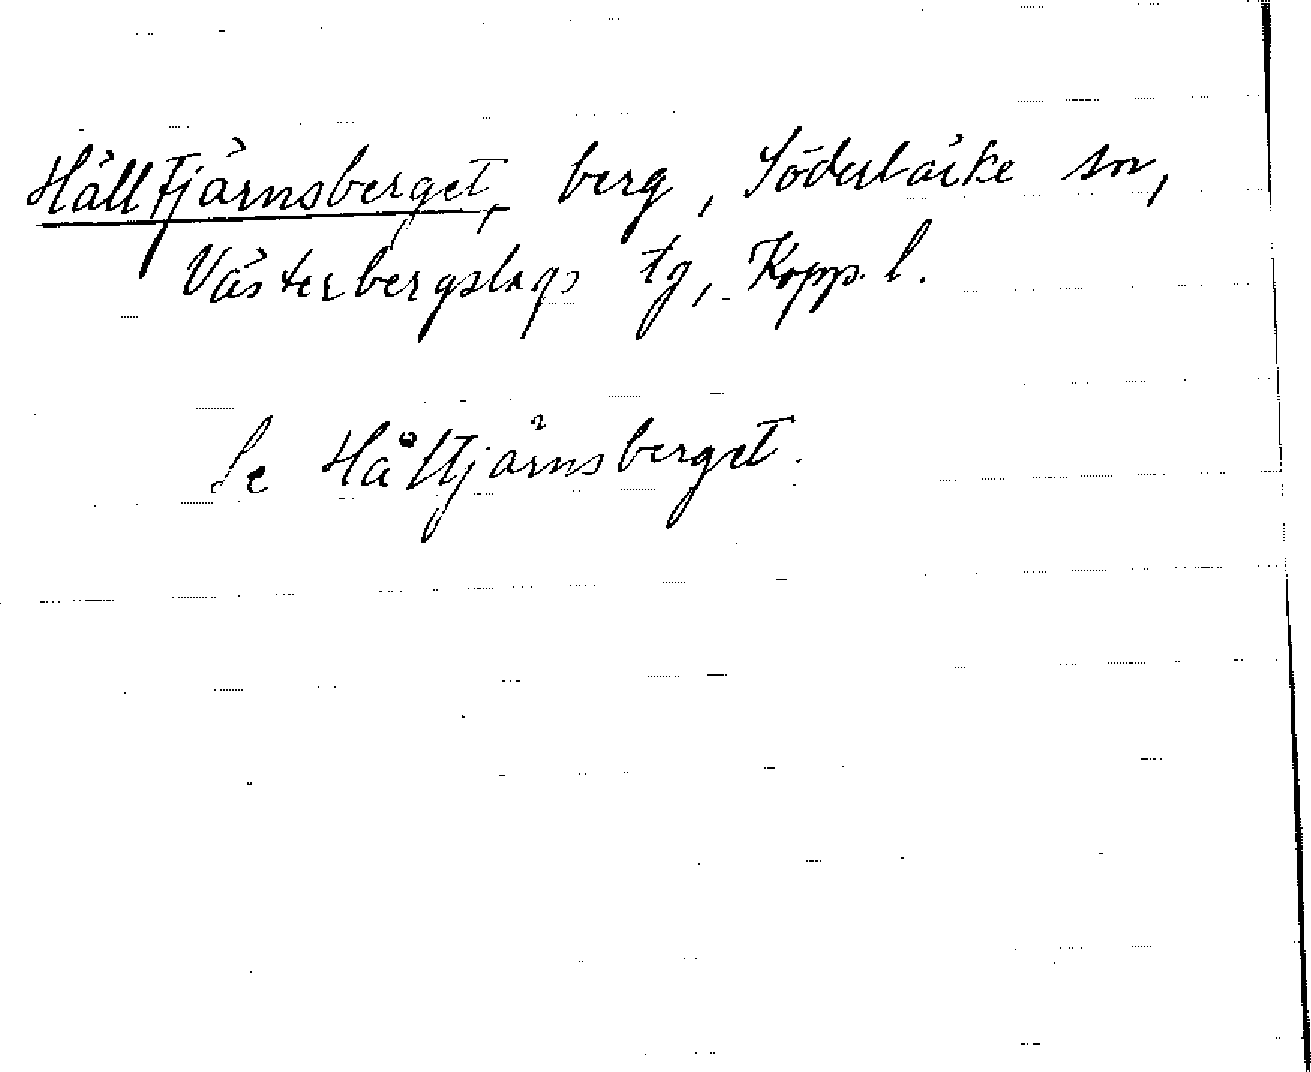 Hålltjärnsberget, berg, Söderbärke sn,
Västerbergslags tg, Kopp. l.
Se Håltjärnsberget.